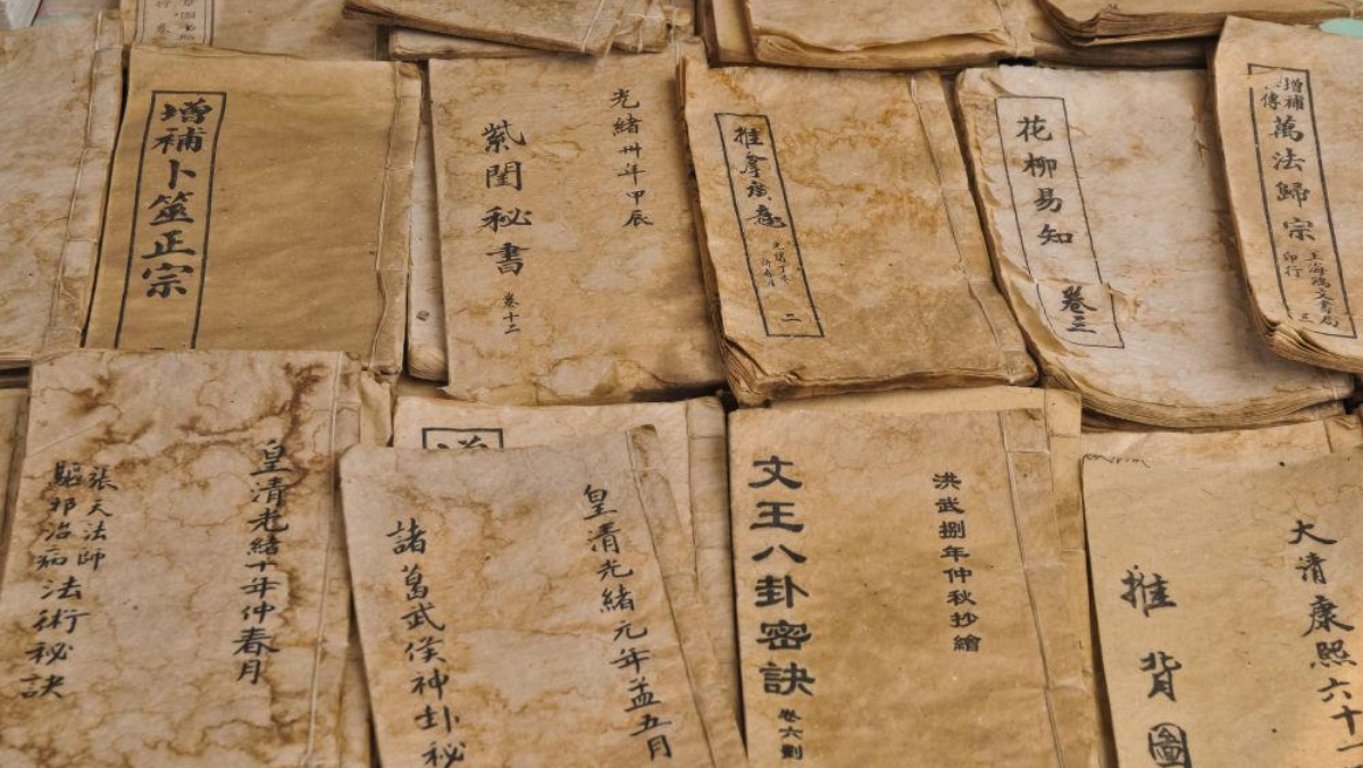 增補卜筮正宗
光緒卅年甲辰
紫閨秘書
卷十二
推拿廣意
二
花柳易知
卷三
增補
萬法歸宗
上海鴻文書局
印行
三
皇清光緒十年仲春月
張天法師
驅邪治病法術秘訣
增
皇清光緒元年孟五月
諸葛武侯神卦秘
洪武捌年仲秋抄繪
文王八卦密訣
卷六
大清康熙六十一
推背圖